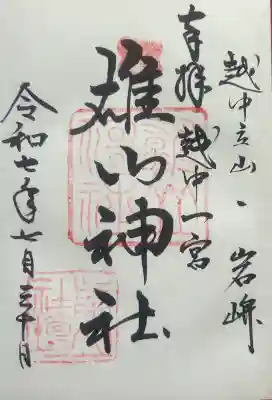 越中立山、岩峅
奉拝 越中一宮
雄山神社
令和七年七月三十日